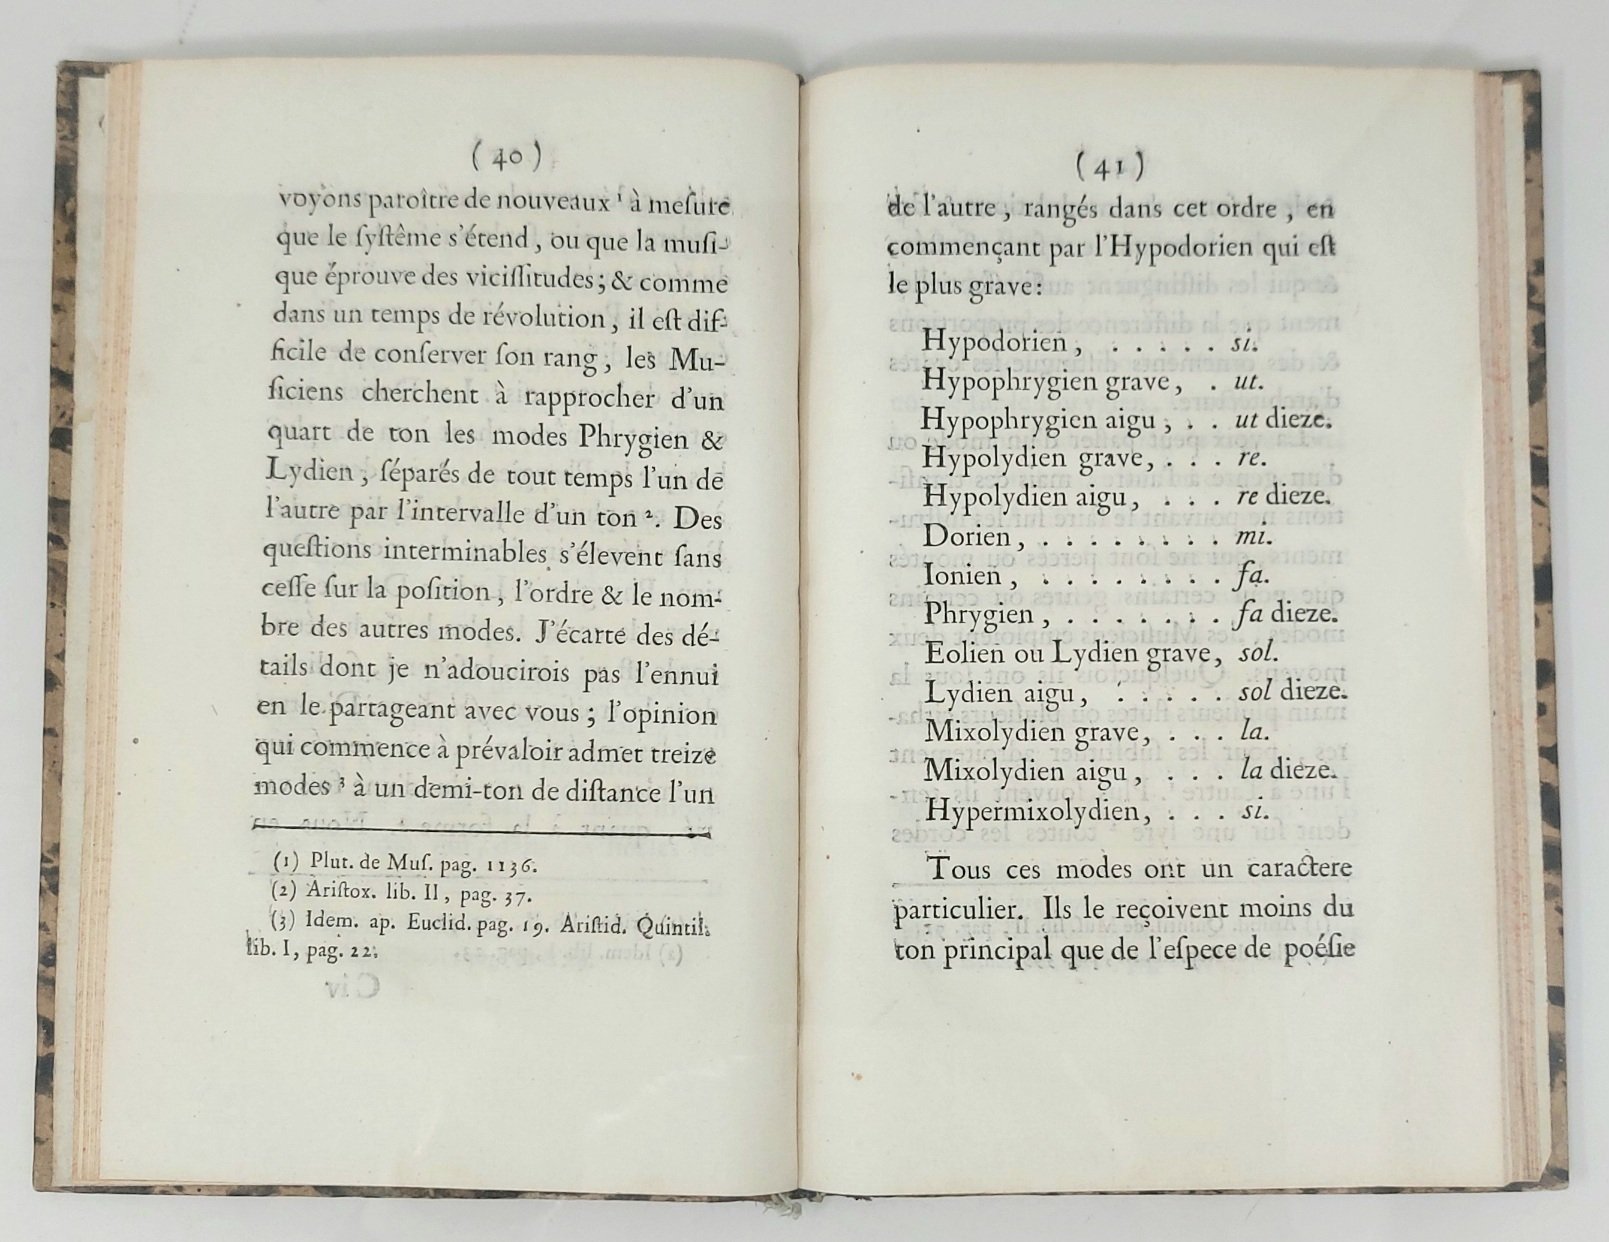 ( 40 )
voyons paroître de nouveaux ¹ à meſure
que le ſyſtême s'étend, ou que la muſi-
que éprouve des viciſſitudes; & comme
dans un temps de révolution, il eſt dif-
ficile de conſerver ſon rang, les Mu-
ſiciens cherchent à rapprocher d'un
quart de ton les modes Phrygien &
Lydien, ſéparés de tout temps l'un de
l'autre par l'intervalle d'un ton ². Des
queſtions interminables s'élevent ſans
ceſſe ſur la poſition, l'ordre & le nom-
bre des autres modes. J'écarte des dé-
tails dont je n'adoucirois pas l'ennui
en le partageant avec vous; l'opinion
qui commence à prévaloir admet treize
modes ³ à un demi-ton de diſtance l'un
(1) Plut. de Muſ. pag. 1136.
(2) Ariſtox. lib. II, pag. 37.
(3) Idem. ap. Euclid. pag. 19. Ariſtid. Quintil.
lib. I, pag. 22.
( 41 )
de l'autre, rangés dans cet ordre, en
commençant par l'Hypodorien qui eſt
le plus grave:
Hypodorien, . . . . . si.
Hypophrygien grave, . ut.
Hypophrygien aigu, . . ut dieze.
Hypolydien grave, . . . re.
Hypolydien aigu, . . . re dieze.
Dorien, . . . . . . . . mi.
Ionien, . . . . . . . . fa.
Phrygien, . . . . . . . fa dieze.
Eolien ou Lydien grave, sol.
Lydien aigu, . . . . . sol dieze.
Mixolydien grave, . . . la.
Mixolydien aigu, . . . la dieze.
Hypermixolydien, . . . si.
Tous ces modes ont un caractere
particulier. Ils le reçoivent moins du
ton principal que de l'eſpece de poéſie